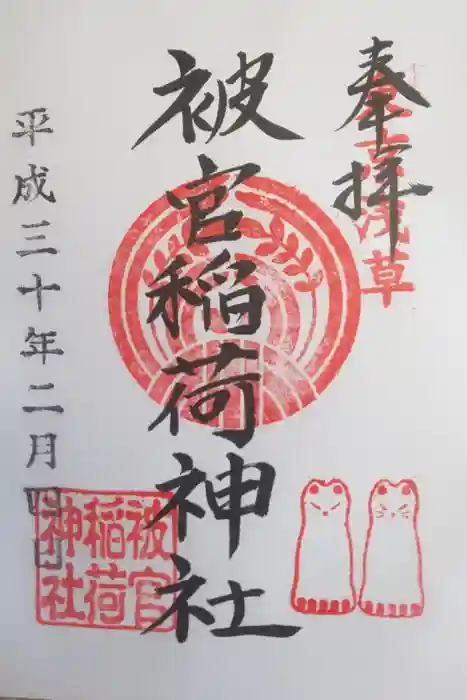 奉拝
東京浅草
被官稲荷神社
被官
稲荷
神社
平成三十年二月四日